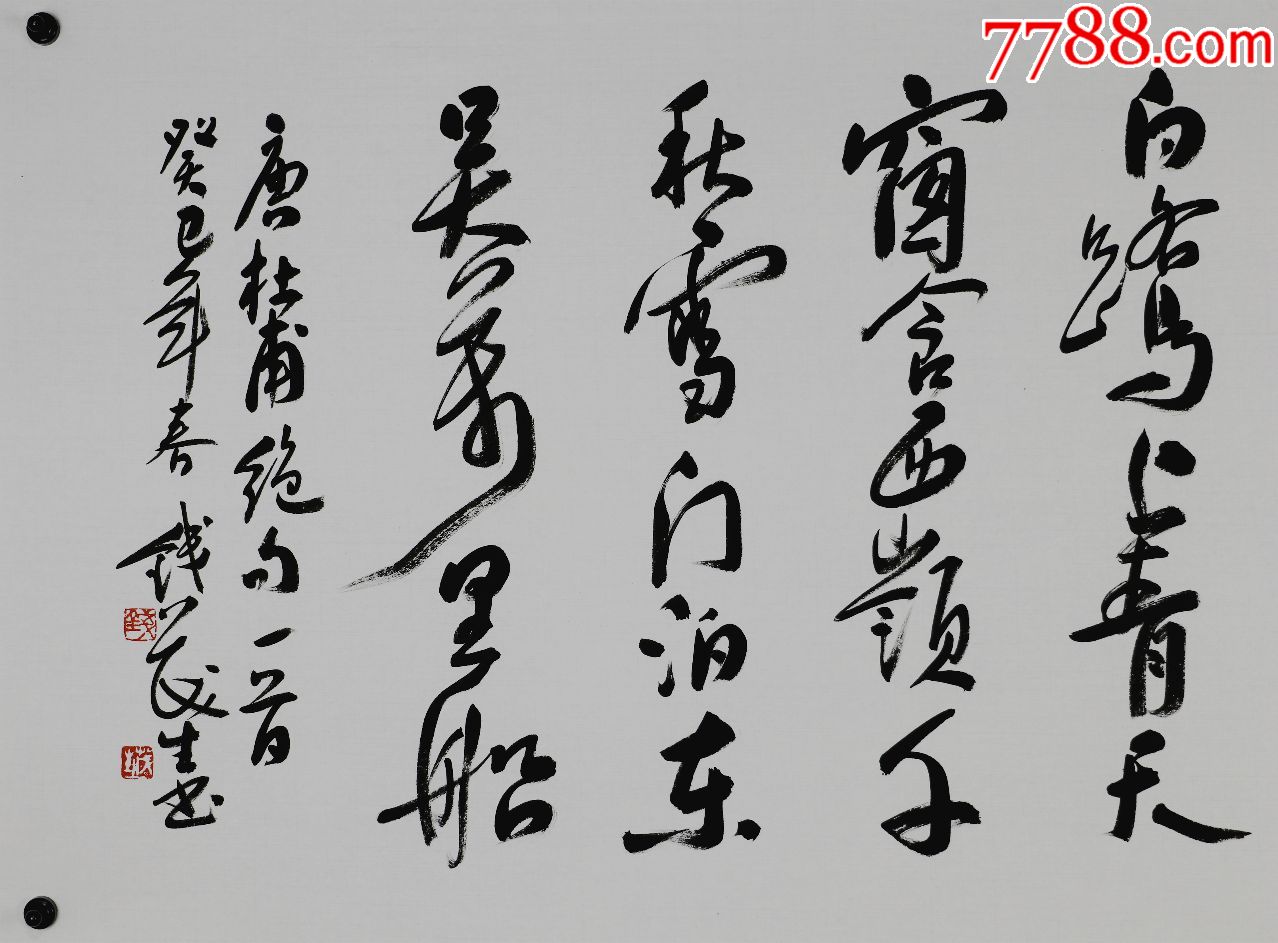 7788.com
白鷺上青天
窗含西嶺千
秋雪门泊东
吴萬里船
唐杜甫絶句一首
癸巳年春 钱茂生书